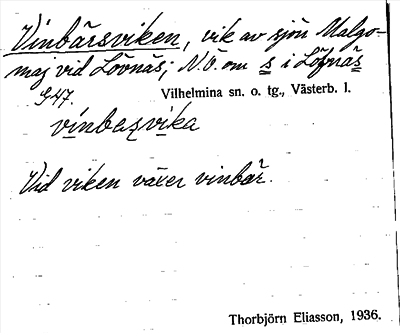 Vinbärsviken, vik av sjön Malgo-
maj vid Lövnäs; N.Ö. om s i Löfnäs
G47.
Vilhelmina sn. o. tg., Västerb. l.
vinbaʐvika
Vid viken växer vinbär.
Thorbjörn Eliasson, 1936.